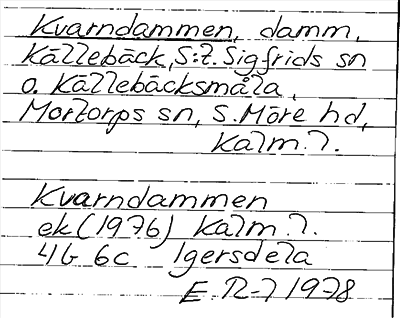 Kvarndammen, damm,
Källebäck, S:t. Sigfrids sn
o. Källebäcksmåla,
Mortorps sn, S. Möre hd,
Kalm. l.
Kvarndammen
ek (1976) Kalm. l.
4G 6c Igersdela
E. R-7 1978